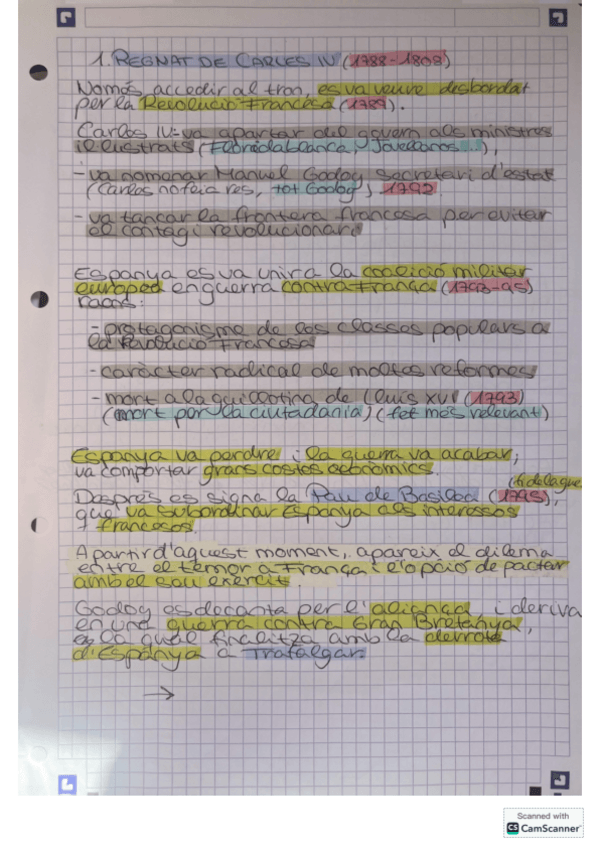 1. REGNAT DE CARLES IV (1788-1808)
Només accedir al tron, es va veure desbordat
per la Revolució Francesa (1789).
Carlos IV-va apartar del govern als ministres
il·lustrats (Floridablanca, Jovellanos...),
- va nomenar Manuel Godoy secretari d'estat
(Carlos no feia res, tot Godoy) 1792.
- va tancar la frontera francesa per evitar
el contagi revolucionari
Espanya es va unir a la coalició militar
europea en guerra contra França (1793-95)
raons:
- protagonisme de les classes populars a
la Revolució Francesa
- caràcter radical de moltes reformes
- mort a la guillotina de Lluís XVI (1793)
(mort per la ciutadania) (fet més rellevant)
Espanya va perdre i la guerra va acabar,
va comportar grans costos econòmics.
(fi de la guerra
Després es signa la Pau de Basilea (1795),
que va subordinar Espanya als interessos
francesos.
A partir d'aquest moment, apareix el dilema
entre el temor a França i l'opció de pactar
amb el seu exèrcit.
Godoy es decanta per l'aliança, i deriva
en una guerra contra Gran Bretanya,
la qual finalitza amb la derrota
d'Espanya a Trafalgar.
→
Scanned with
CS CamScanner